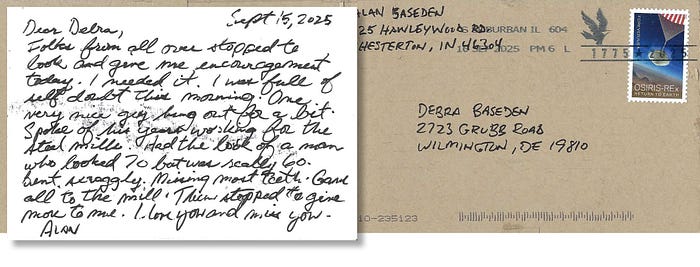 Sept 15, 2025
Dear Debra,
Folks from all over stopped to
look and give me encouragement
today. I needed it. I was full of
self doubt this morning. One
very nice guy hung out for a bit.
Spoke of his years working for the
steel mills. Had the look of a man
who looked 70 but was really 60.
bent, scraggly. Missing most teeth. Gave
all to the mill. Then stopped to give
more to me. I love you and miss you.
ALAN
ALAN BASEDEN
25 HAWLEYWOOD RD
HESTERTON, IN 46304
S SUBURBAN IL 604
2025 PM 6 L
1775
FOREVER/USA
OSIRIS-REx
RETURN TO EARTH
DEBRA BASEDEN
2723 GRUBB ROAD
WILMINGTON, DE 19810
10-235123